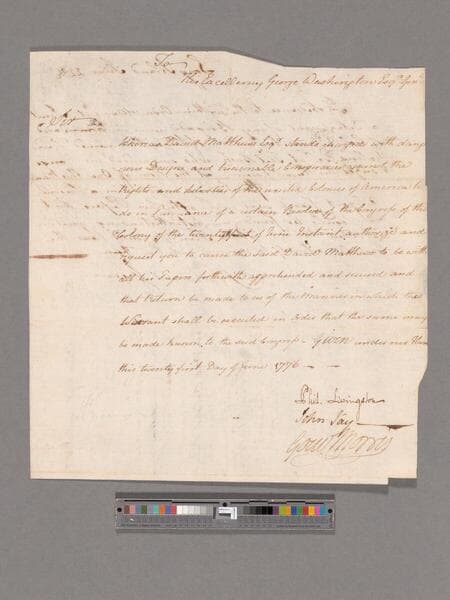 To
His Excellency George Washington Esqr. Genl.
Sir
Whereas David Matthews Esqr. stands charged with dang
rous Designs and treasonable Conspiracies against the
Rights and Liberties of the united Colonies of America We
do in Pursuance of a certain Resolve of the Congress of this
Colony of the twentieth of June Instant authorize and
request you to cause the said David Matthews to be with
all his Papers forthwith apprehended and secured and
that Return be made to us of the Manner in which this
Warrant shall be executed in Order that the same may
be made known to the said Congress - Given under our Hands
this twenty first Day of June 1776
Phil. Livingston
John Jay
Gouv Morris